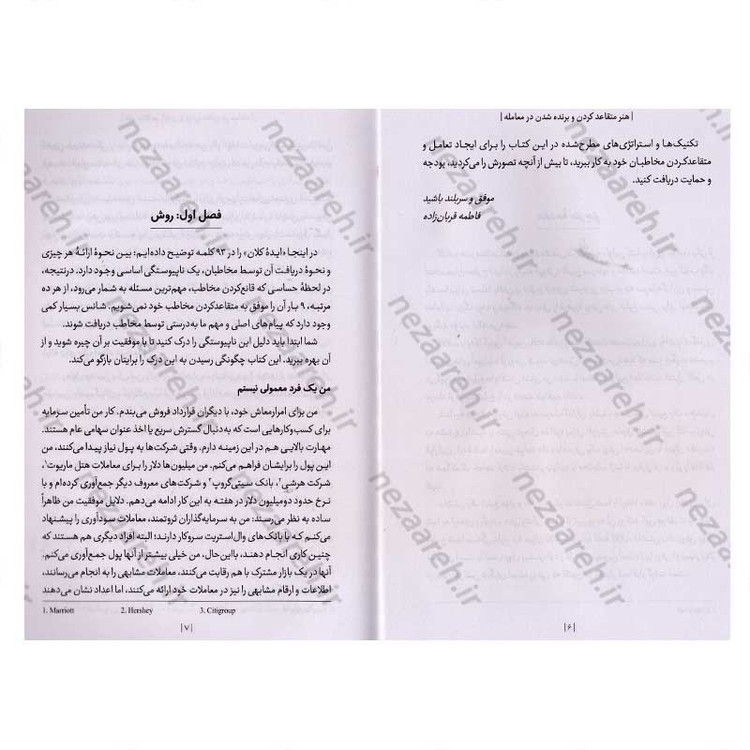 | هنر متقاعد کردن و برنده شدن در معامله |
تکنیک‌ها و استراتژی‌های مطرح‌شده در این کتاب را برای ایجاد تعامل و
متقاعدکردن مخاطبان خود به کار ببرید، تا بیش از آنچه تصورش را می‌کردید، بودجه
و حمایت دریافت کنید.
موفق و سربلند باشید
فاطمه قربان‌زاده
|۶|
فصل اول: روش
در اینجا «ایدهٔ کلان» را در ۹۳ کلمه توضیح داده‌ایم؛ بین نحوهٔ ارائهٔ هر چیزی
و نحوهٔ دریافت آن توسط مخاطبان، یک ناپیوستگی اساسی وجود دارد. درنتیجه،
در لحظهٔ حساسی که قانع‌کردن مخاطب، مهم‌ترین مسئله به شمار می‌رود، از هر ده
مرتبه، ۹ بار آن را موفق به متقاعدکردن مخاطب خود نمی‌شویم. شانس بسیار کمی
وجود دارد که پیام‌های اصلی و مهم ما به‌درستی توسط مخاطب دریافت شوند.
شما ابتدا باید دلیل این ناپیوستگی را درک کنید تا با موفقیت بر آن چیره شوید و از
آن بهره ببرید. این کتاب چگونگی رسیدن به این درک را برایتان بازگو می‌کند.
من یک فرد معمولی نیستم
من برای امرارمعاش خود، با دیگران قرارداد فروش می‌بندم. کار من تأمین سرمایه
برای کسب‌وکارهایی است که به‌دنبال گسترش سریع یا اخذ عنوان سهامی عام هستند.
مهارت بالایی هم در این زمینه دارم. وقتی شرکت‌ها به پول نیاز پیدا می‌کنند، من
این پول را برایشان فراهم می‌کنم. من میلیون‌ها دلار را برای معاملات هتل ماریوت۱،
شرکت هرشی۲، بانک سیتی‌گروپ۳ و شرکت‌های معروف دیگر جمع‌آوری کرده‌ام و با
نرخ حدود دومیلیون دلار در هفته به این کار ادامه می‌دهم. دلایل موفقیت من ظاهراً
ساده به نظر می‌رسند: من به سرمایه‌گذاران ثروتمند، معاملات سودآوری را پیشنهاد
می‌کنم که با بانک‌های وال‌استریت سروکار دارند؛ البته افراد دیگری هم هستند که
چنین کاری انجام دهند، بااین‌حال، من خیلی بیشتر از آنها پول جمع‌آوری می‌کنم.
آنها در یک بازار مشترک با هم رقابت می‌کنند، معاملات مشابهی را به انجام می‌رسانند،
اطلاعات و ارقام مشابهی را نیز در معاملات خود ارائه می‌کنند، اما اعداد نشان می‌دهند
1. Marriott 2. Hershey 3. Citigroup
|۷|
nezaareh.ir
nezaareh.ir
nezaareh.ir
nezaareh.ir
nezaareh.ir
nezaareh.ir
nezaareh.ir
nezaareh.ir